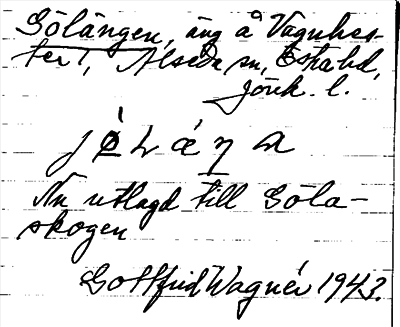 Gölängen, äng å Vagnhes-
ter 1, Alseda sn, Ö hd,
Jönk. l.
Nu utlagd till Göla-
skogen
Gottfrid Wagnér 1943.